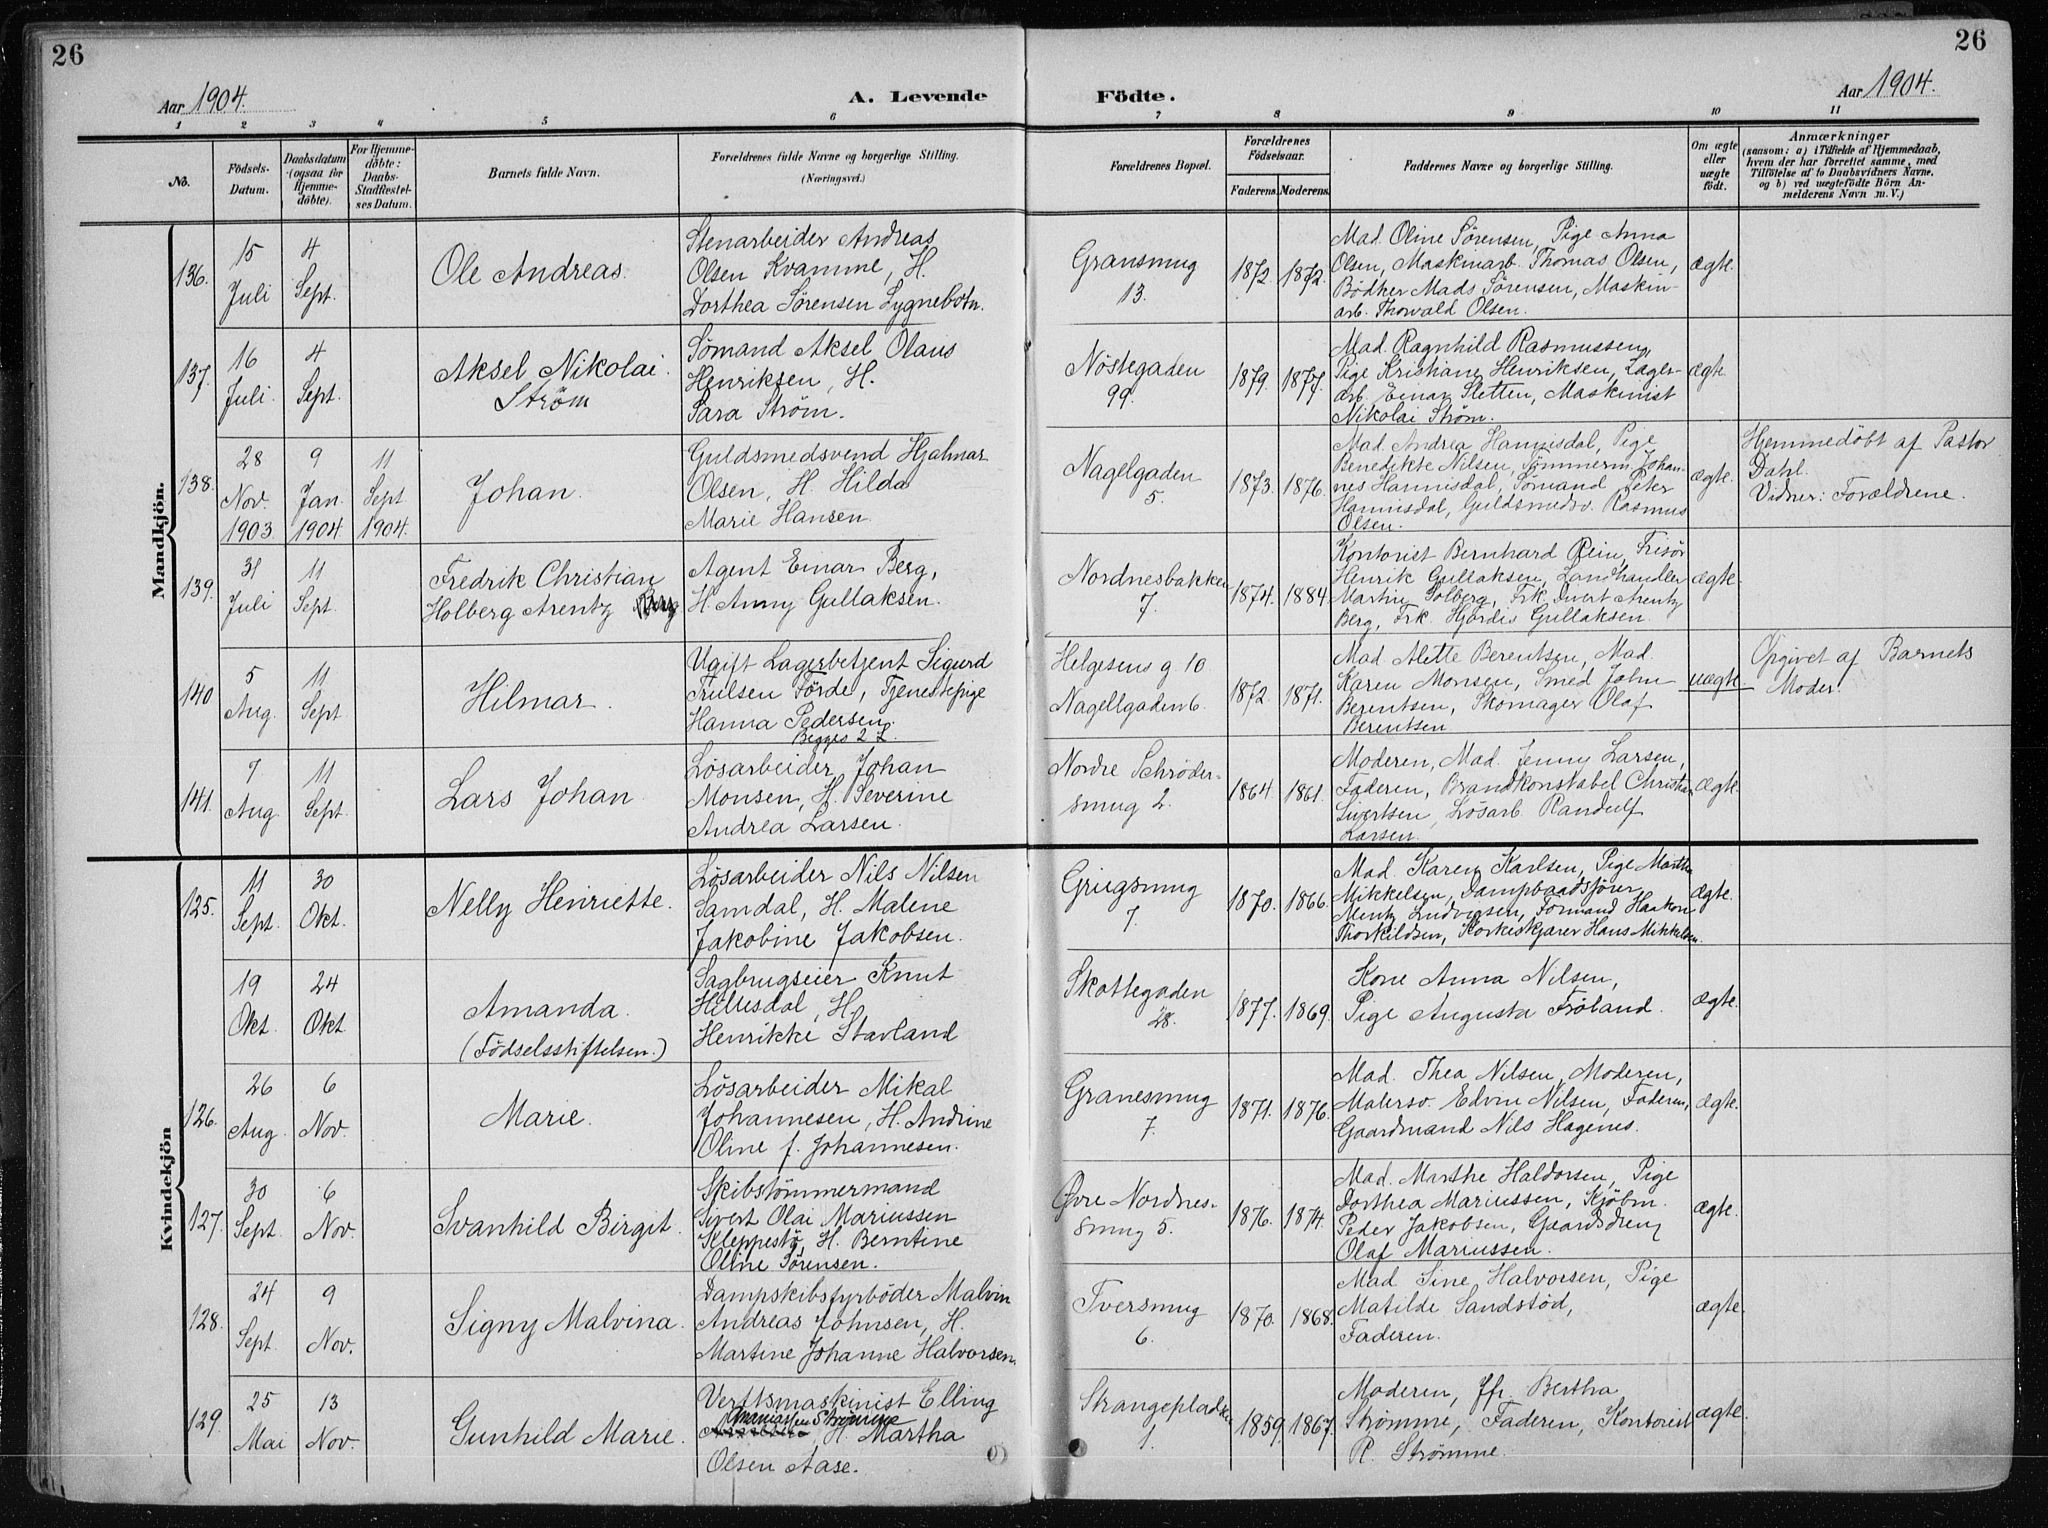 26
26
Aar 1904.
A. Levende
Födte.
Aar 1904.
1 2 3 4 5 6 7 8 9 10 11
No.
Födsels-
Datum.
Daabsdatum
(ogsaa for
Hjemme-
døbte).
For Hjemme-
döbte:
Daabs-
Stadfæstel-
ses Datum.
Barnets fulde Navn.
Forældrenes fulde Navne og borgerlige Stilling.
(Næringsvei.)
Forældrenes Bopæl.
Forældrenes
Födselsaar.
Faderens. Moderens.
Faddernes Navne og borgerlige Stilling.
Om ægte
eller
uægte
födt.
Anmærkninger
(saasom: a) i Tilfælde af Hjemmedaab,
hvem der har forrettet samme, med
Tilföielse af to Daabsvidners Navne,
og b) ved uægtefödte Börn An-
melderens Navn m. V.)
Mandkjön.
136.
15
Juli
4
Sept.
Ole Andreas.
Stenarbeider Andreas
Olsen Kvamme, H.
Dorthea Sørensen Lygnebotn.
Gransmug
13.
1872
1872.
Mad. Oline Sørensen, Pige Anna
Olsen, Maskinarb. Thomas Olsen,
Bødker Mads Sørensen, Maskin-
arb. Thorvald Olsen.
ægte.
137.
16
Juli.
4
Sept.
Aksel Nikolai
Strøm
Sømand Aksel Olaus
Henriksen, H.
Sara Strøm.
Nøstegaden
99.
1879.
1877.
Mad. Ragnhild Rasmussen,
Pige Kristiane Henriksen, Lager-
arb. Einar Sletten, Maskinist
Nikolai Strøm.
ægte
138.
28
Nov.
1903
9
Jan.
1904
11
Sept
1904.
Johan.
Guldsmedsvend Hjalmar
Olsen, H. Hilda
Marie Hansen.
Nagelgaden
5.
1873.
1876.
Mad. Andrea Hannisdal, Pige
Benedikte Nilsen, Tømmerm. Johan-
nes Hannisdal, Sømand Peter
Hannisdal, Guldsmedsv. Rasmus
Olsen.
ægte.
Hjemmedöbt af Pastor
Dahl.
Vidner: Forældrene.
139.
31
Juli
11
Sept.
Fredrik Christian
Holberg Arentz Berg
Agent Einar Berg,
H. Anny Gullaksen.
Nordnesbakken
7.
1874.
1884.
Kontorist Bernhard Rein, Frisør
Henrik Gullaksen, Landhandler
Martin Solberg, Frk. Divert Arentz
Berg, Frk. Hjørdis Gullaksen.
ægte.
140
5
Aug.
11
Sept.
Hilmar.
Ugift Lagerbetjent Sigurd
Trulsen Förde, Tjenestepige
Hanna Pedersen.
Begges 2 L.
Helgesens g 10
Nagellgaden 6.
1872.
1871.
Mad Alette Berentsen, Mad.
Karen Monsen, Smed John
Berentsen, Skomager Olaf
Berentsen
uægte
Opgivet af Barnets
Moder.
141.
7
Aug.
11
Sept.
Lars Johan.
Løsarbeider Johan
Monsen, H. Severine
Andrea Larsen.
Nordre Schrøder-
smug 2.
1864.
1861.
Moderen, Mad. Jenny Larsen,
Faderen, Brandkonstabel Christian
Sivertsen, Løsarb. Randulf
Larsen.
ægte.
Kvindekjön
125.
11
Sept.
30
Okt.
Nelly Henriette.
Løsarbeider Nils Nilsen
Samdal, H. Malene
Jakobine Jakobsen.
Griegsmug
7.
1870.
1866.
Mad. Karen Karlsen, Pige Martha
Mikkelsen, Dampbaadsfører
Mentz Ludvigsen, Formand Haakon
Thorkildsen, Korkeskjærer Hans Mikkelsen.
ægte.
19
Okt.
24
Okt
Amanda.
(Födselsstiftelsen.)
Sagbrugseier Knut
Hillesdal, H.
Henrikke Stavland
Skottegaden
28.
1877.
1869.
Kone Anna Nilsen,
Pige Augusta Frøland.
ægte.
126.
26
Aug.
6
Nov.
Marie.
Løsarbeider Mikal
Johannesen, H. Andrine
Oline f. Johannesen.
Granesmug
7.
1871.
1876.
Mad. Thea Nilsen, Moderen,
Malersv. Edvin Nilsen, Faderen,
Gaardmand Nils Hagenes.
ægte.
127.
30
Sept.
6
Nov.
Svanhild Birgit.
Skibstømmermand
Sivert Olai Mariussen
Kleppestø, H. Berntine
Oline Sørensen.
Øvre Nordnes-
smug 5.
1876.
1874.
Mad. Marthe Haldorsen, Pige
Dorthea Mariussen, Kjøbm.
Peder Jakobsen, Gaardsdreng
Olaf Mariussen.
ægte.
128.
24
Sept.
9
Nov.
Signy Malvina.
Dampskibsfyrböder Malvin
Andreas Johnsen, H.
Martine Johanne Halvorsen.
Tversmug
6.
1870.
1868.
Mad Sine Halvorsen, Pige
Matilde Sandstød,
Faderen.
ægte
129.
25
Mai
13
Nov.
Gunhild Marie.
Verftsmaskinist Elling
Ananiassen Strømme
H. Martha
Olsen Aase.
Strangepladsen
1.
1859.
1867.
Moderen, Jfr. Bertha
Strømme, Faderen, Kontorist
R. Strømme.
ægte.